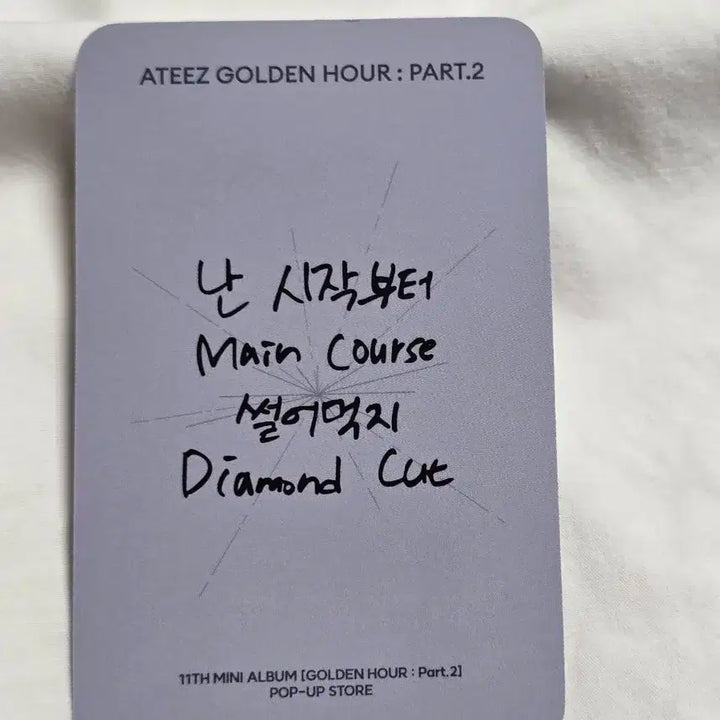 ATEEZ GOLDEN HOUR : PART.2
난 시작부터
Main Course
썰어먹지
Diamond Cut
11TH MINI ALBUM [GOLDEN HOUR : Part.2]
POP-UP STORE